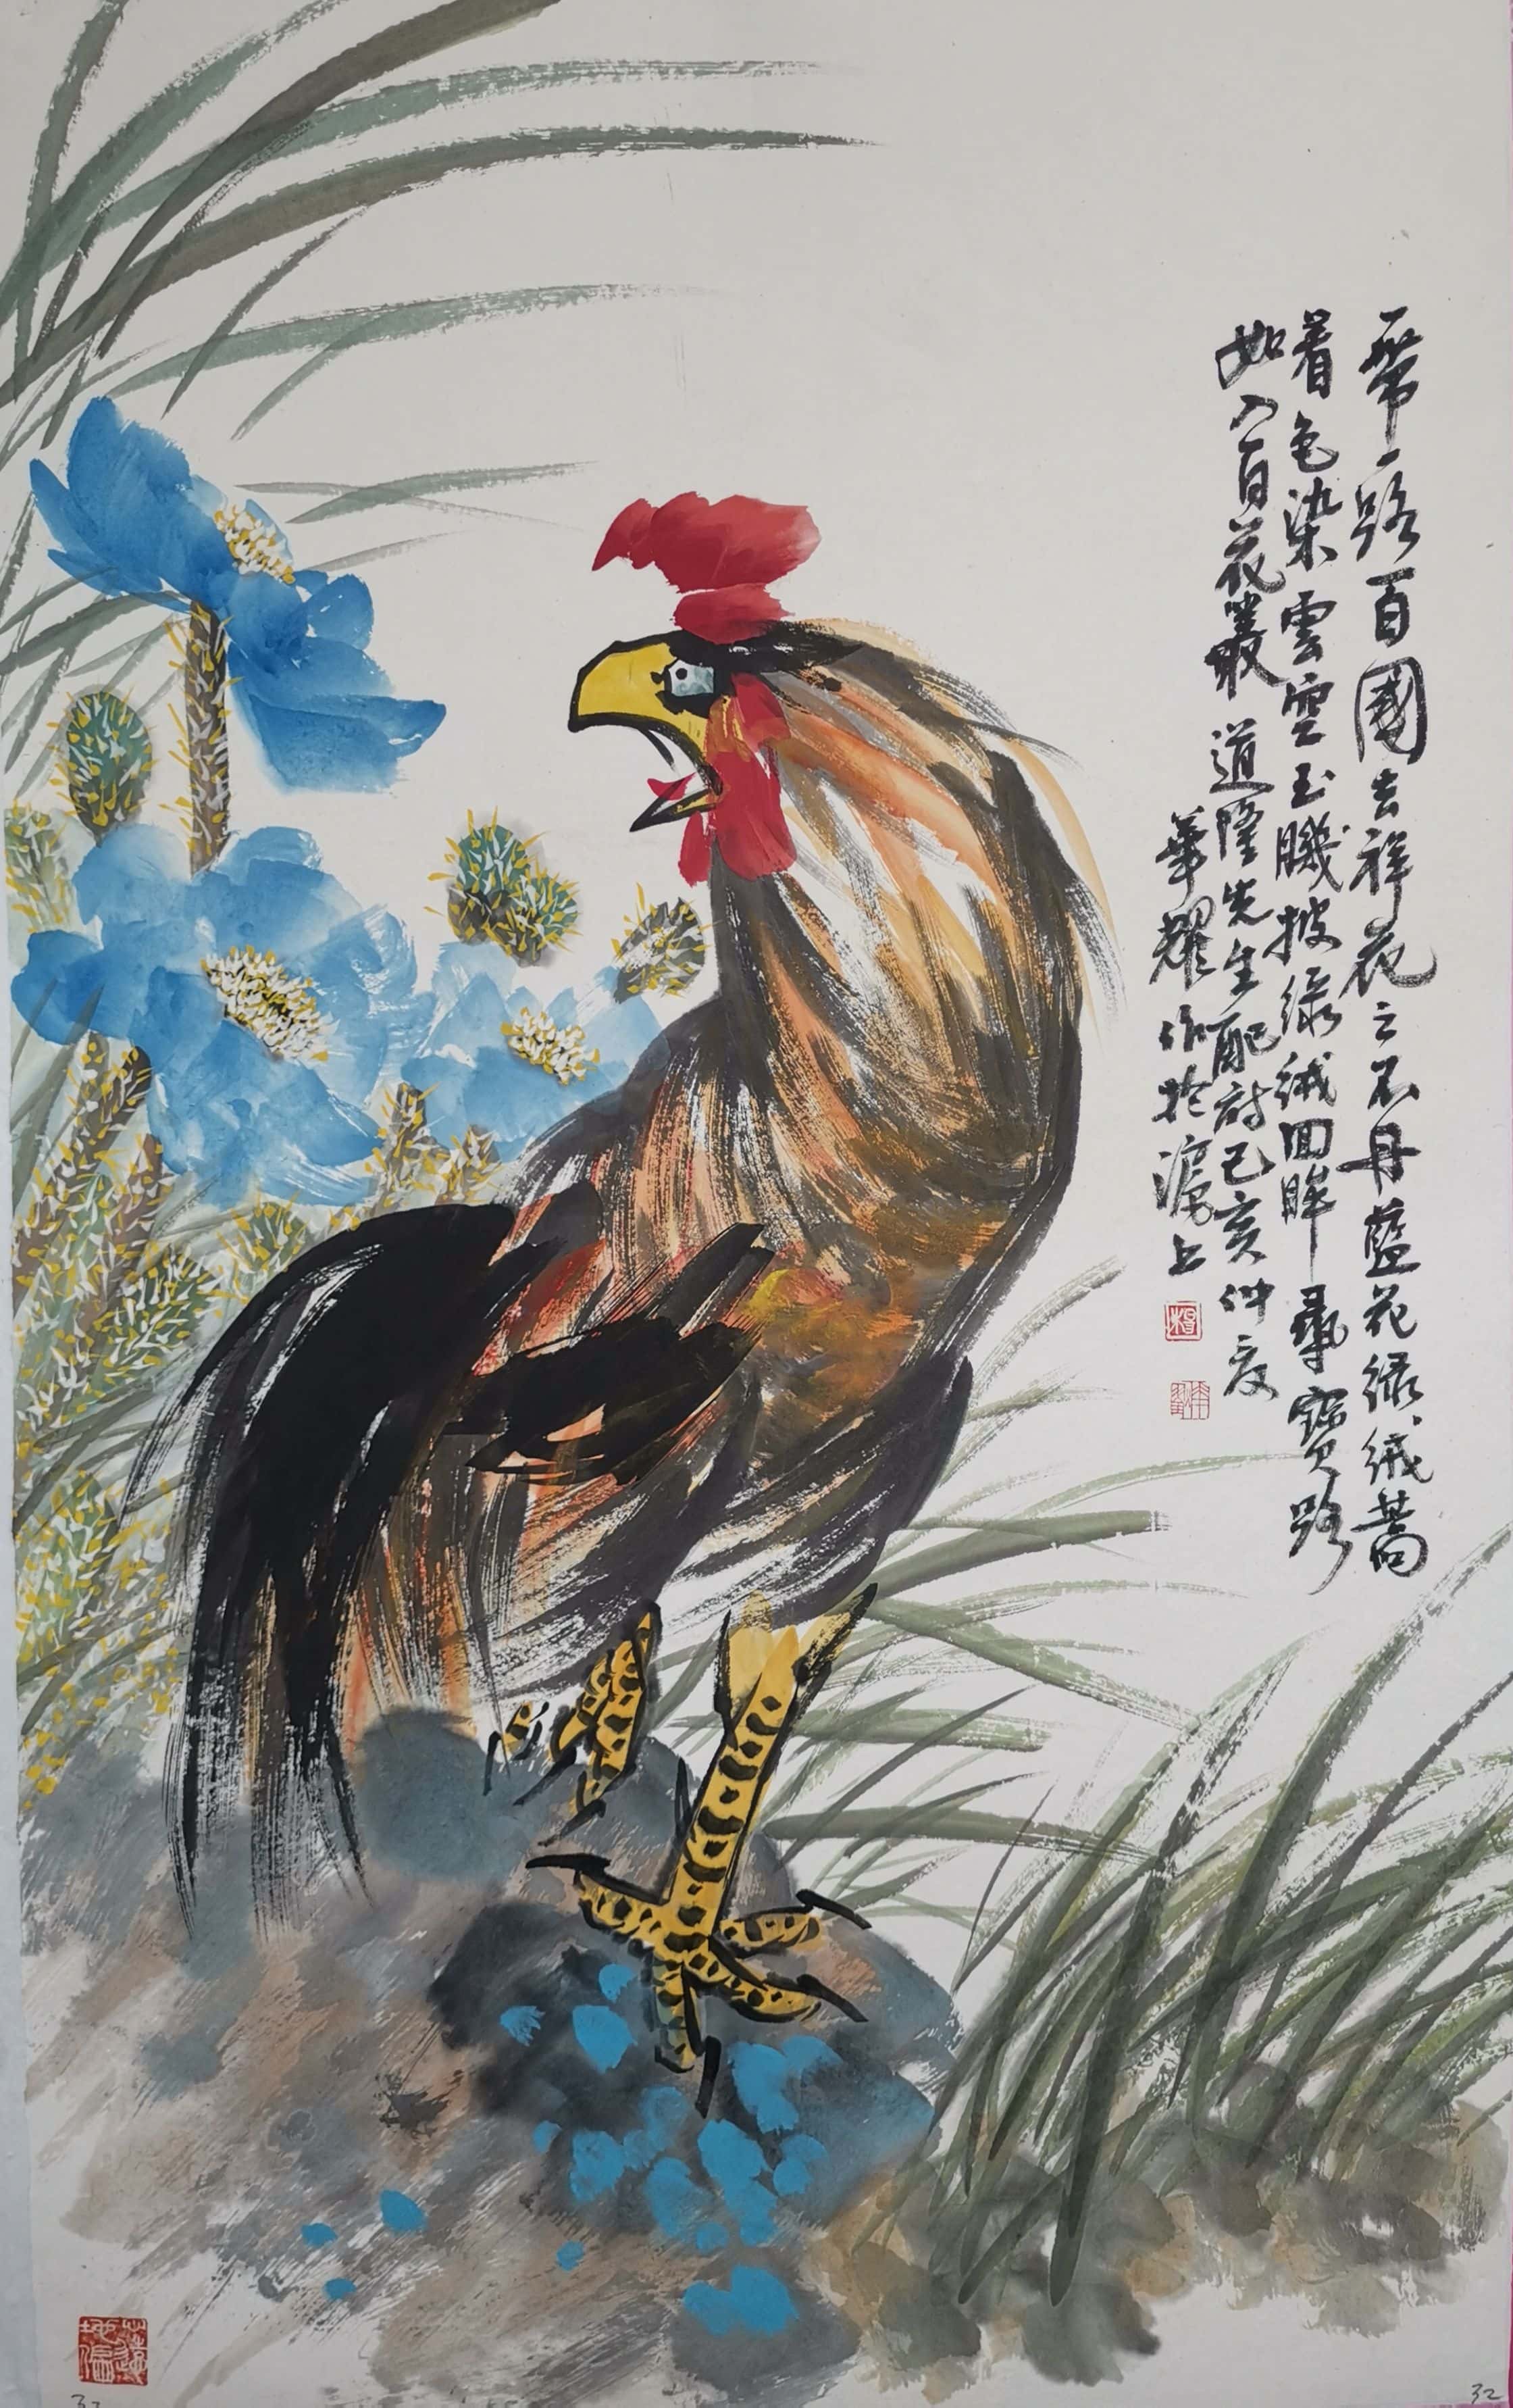 一帶一路百國吉祥花之不丹藍花綠絨蒿
着色染雲雲玉臘披綠絨回眸尋寶路
如入百花叢 道隆先生配詩己亥仲夏
華耀作於滬上
32